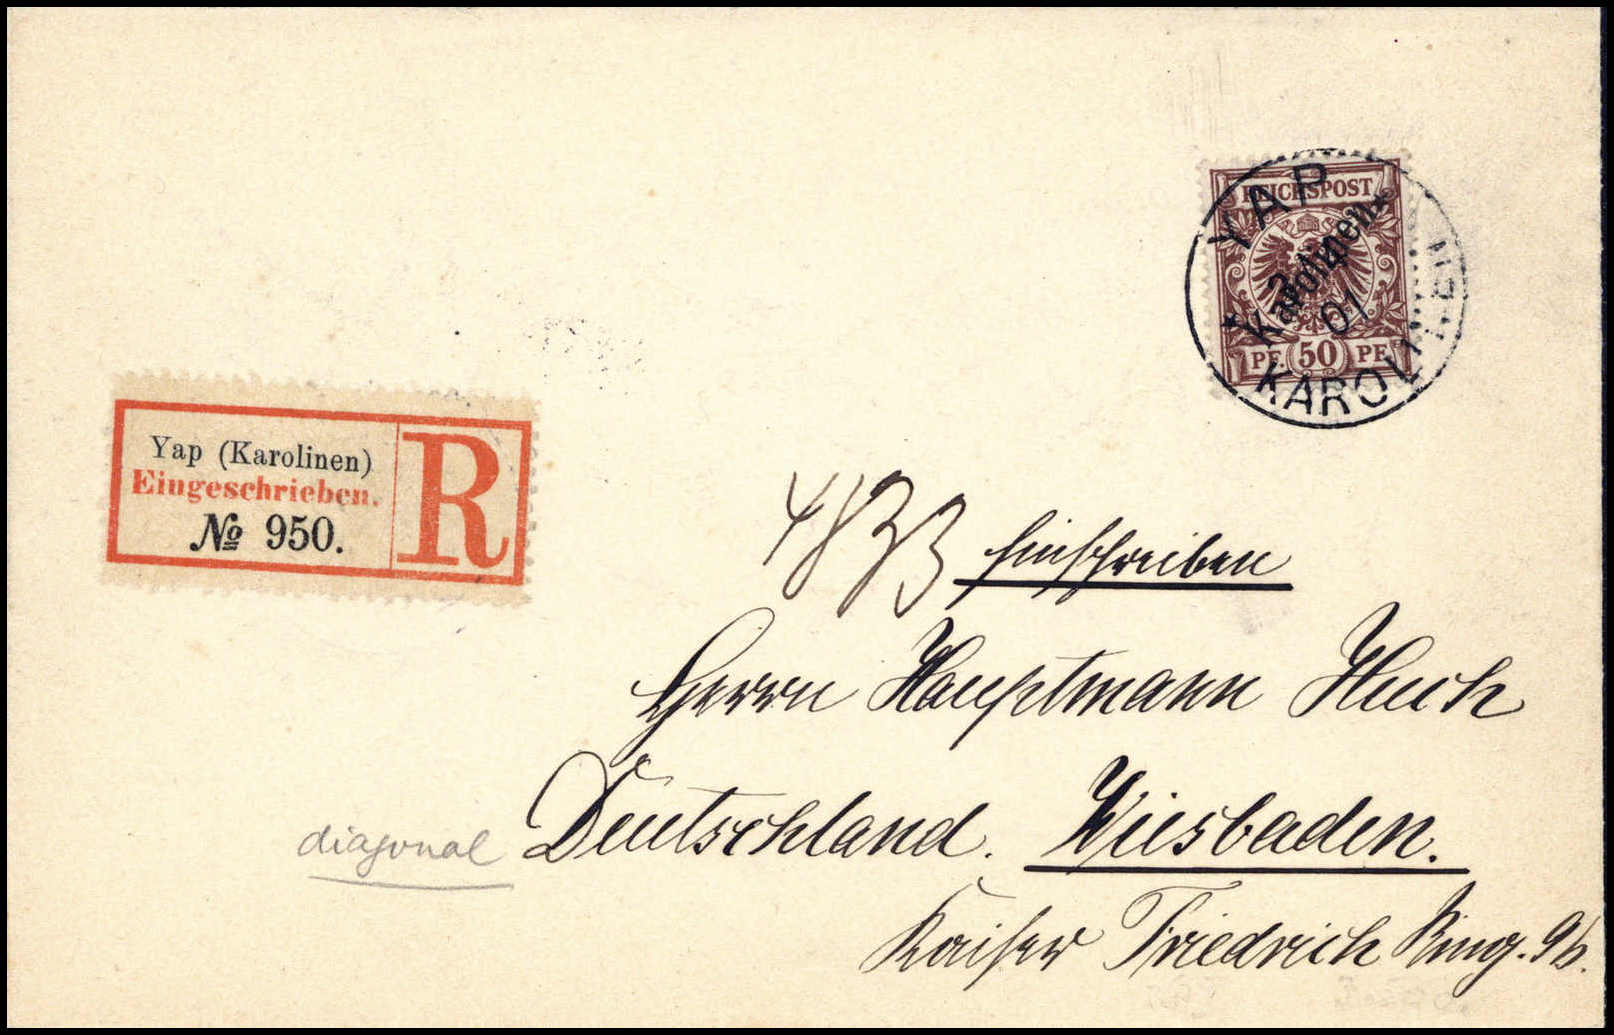 YAP
REICHSPOST
Karolinen
01
PF 50 PF
KAROLINEN
Yap (Karolinen)
Eingeschrieben.
R
№ 950.
Einschreiben
Herrn Hauptmann Huch
diagonal
Deutschland. Wiesbaden.
Kaiser Friedrich Ring. 96.